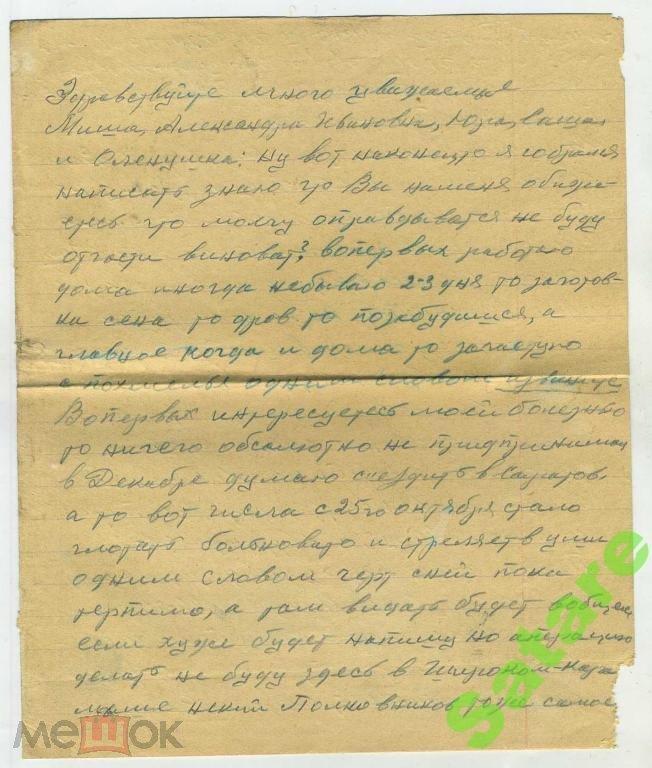 Здравствуйте много уважаемые
Миша, Александра Ивановна, Юра, Саша
и Оленушка: Ну вот наконецто я собрался
написать знаю что Вы наменя обижае-
тесь что молчу оправдыватся не буду
отчасти виноват? вопервых работаю
дома иногда небываю 2-3 дня то заготов-
ка сена то дров то а
главное когда и дома то зачастую
с похмелья одним словом извените
Вопервых интересуетесь моей болезнью
то ничего обсалютно не предпринимал
в Декабре думаю съездить в Саратов.
а то вот числа с 25го октября стало
глотать больновато и стреляет в уши
одним словом черт сней пока
терпимо, а там видать будет вобщем
если хуже будет напишу но аперацию
делать не буду здесь в Широком-Кара
мыше некий Полковников тоже самое
Satare
мешок